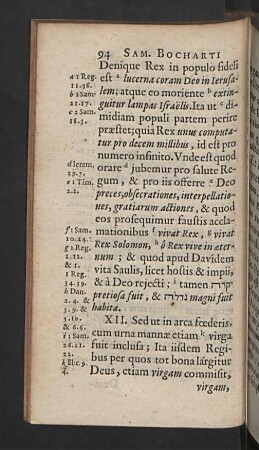 94 SAM. BOCHARTI
Denique Rex in populo fideli
a 1 Reg. 11.36.
est a lucerna coram Deo in Jerusa-
lem; atque eo moriente b extin-
b 2 Sam. 21.17.
guitur lampas Israëlis. Ita ut c di-
c 2 Sam. 18.3.
midiam populi partem perire
præstet; quia Rex unus computa-
tur pro decem millibus, id est pro
numero infinito. Unde est quod
d Jerem. 29.7.
orare d jubemur pro salute Re-
e 1 Tim. 2.2.
gum, & pro iis offerre e Deo
preces, obsecrationes, interpellatio-
nes, gratiarum actiones, & quod
eos prosequimur faustis accla-
f 1 Sam. 10.24.
mationibus f vivat Rex, g vivat
g 2 Reg. 1.12.
Rex Solomon, h ô Rex vive in æter-
num; & quod apud Davidem
& 1.
vita Saulis, licet hostis & impii,
1 Reg. 34.39.
& à Deo rejecti; i tamen יקרה
h Dan. 2.4. & 3.9. & 5.10. & 6.6.
pretiosa fuit, & גדלה magni fuit
habita.
XII. Sed ut in arca fœderis,
i 1 Sam. 26.21. 22.
cum urna mannæ etiam k virga
fuit inclusa; Ita iisdem Regi-
k Hbr. 9. 4.
bus per quos tot bona largitur
Deus, etiam virgam commisit,
virgam,